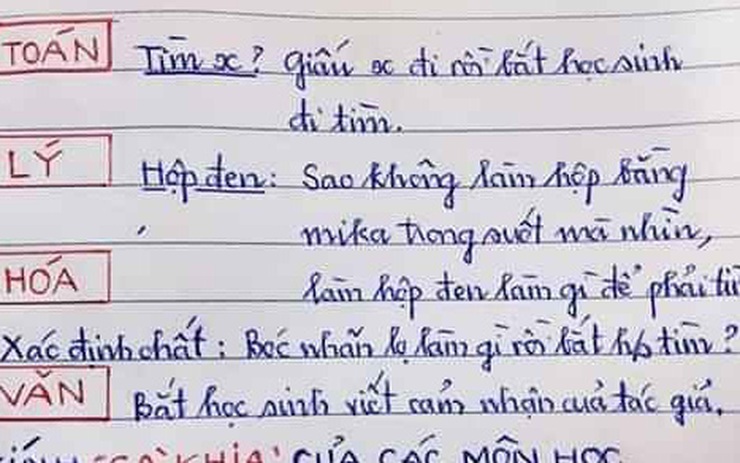 TOÁN Tìm x? Giấu x đi rồi bắt học sinh
đi tìm.
LÝ Hộp đen: Sao không làm hộp bằng
mika trong suốt mà nhìn,
HÓA làm hộp đen làm gì để phải
Xác định chất: Bóc nhãn lọ làm gì rồi bắt h/s tìm?
VĂN Bắt học sinh viết cảm nhận của tác giả.
"CÀ KHỊA" CỦA CÁC MÔN HỌC